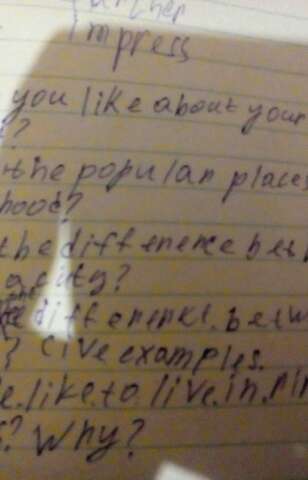 Impress
you like about your
?
the popular place
hood?
the difference bet
city?
the difference. betw
? Give examples.
e. like. to. live. in.
? Why?